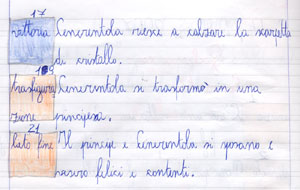 17
vittoria Cenerentola riesce a calzare la scarpetta
di cristallo.
19
trasfigura Cenerentola si trasformò in una
zione principessa.
21
lieto fine Il principe e Cenerentola si sposano e
vissero felici e contenti.